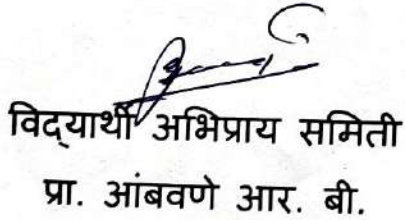 विद्यार्थी अभिप्राय समिती
प्रा. आंबवणे आर. बी.